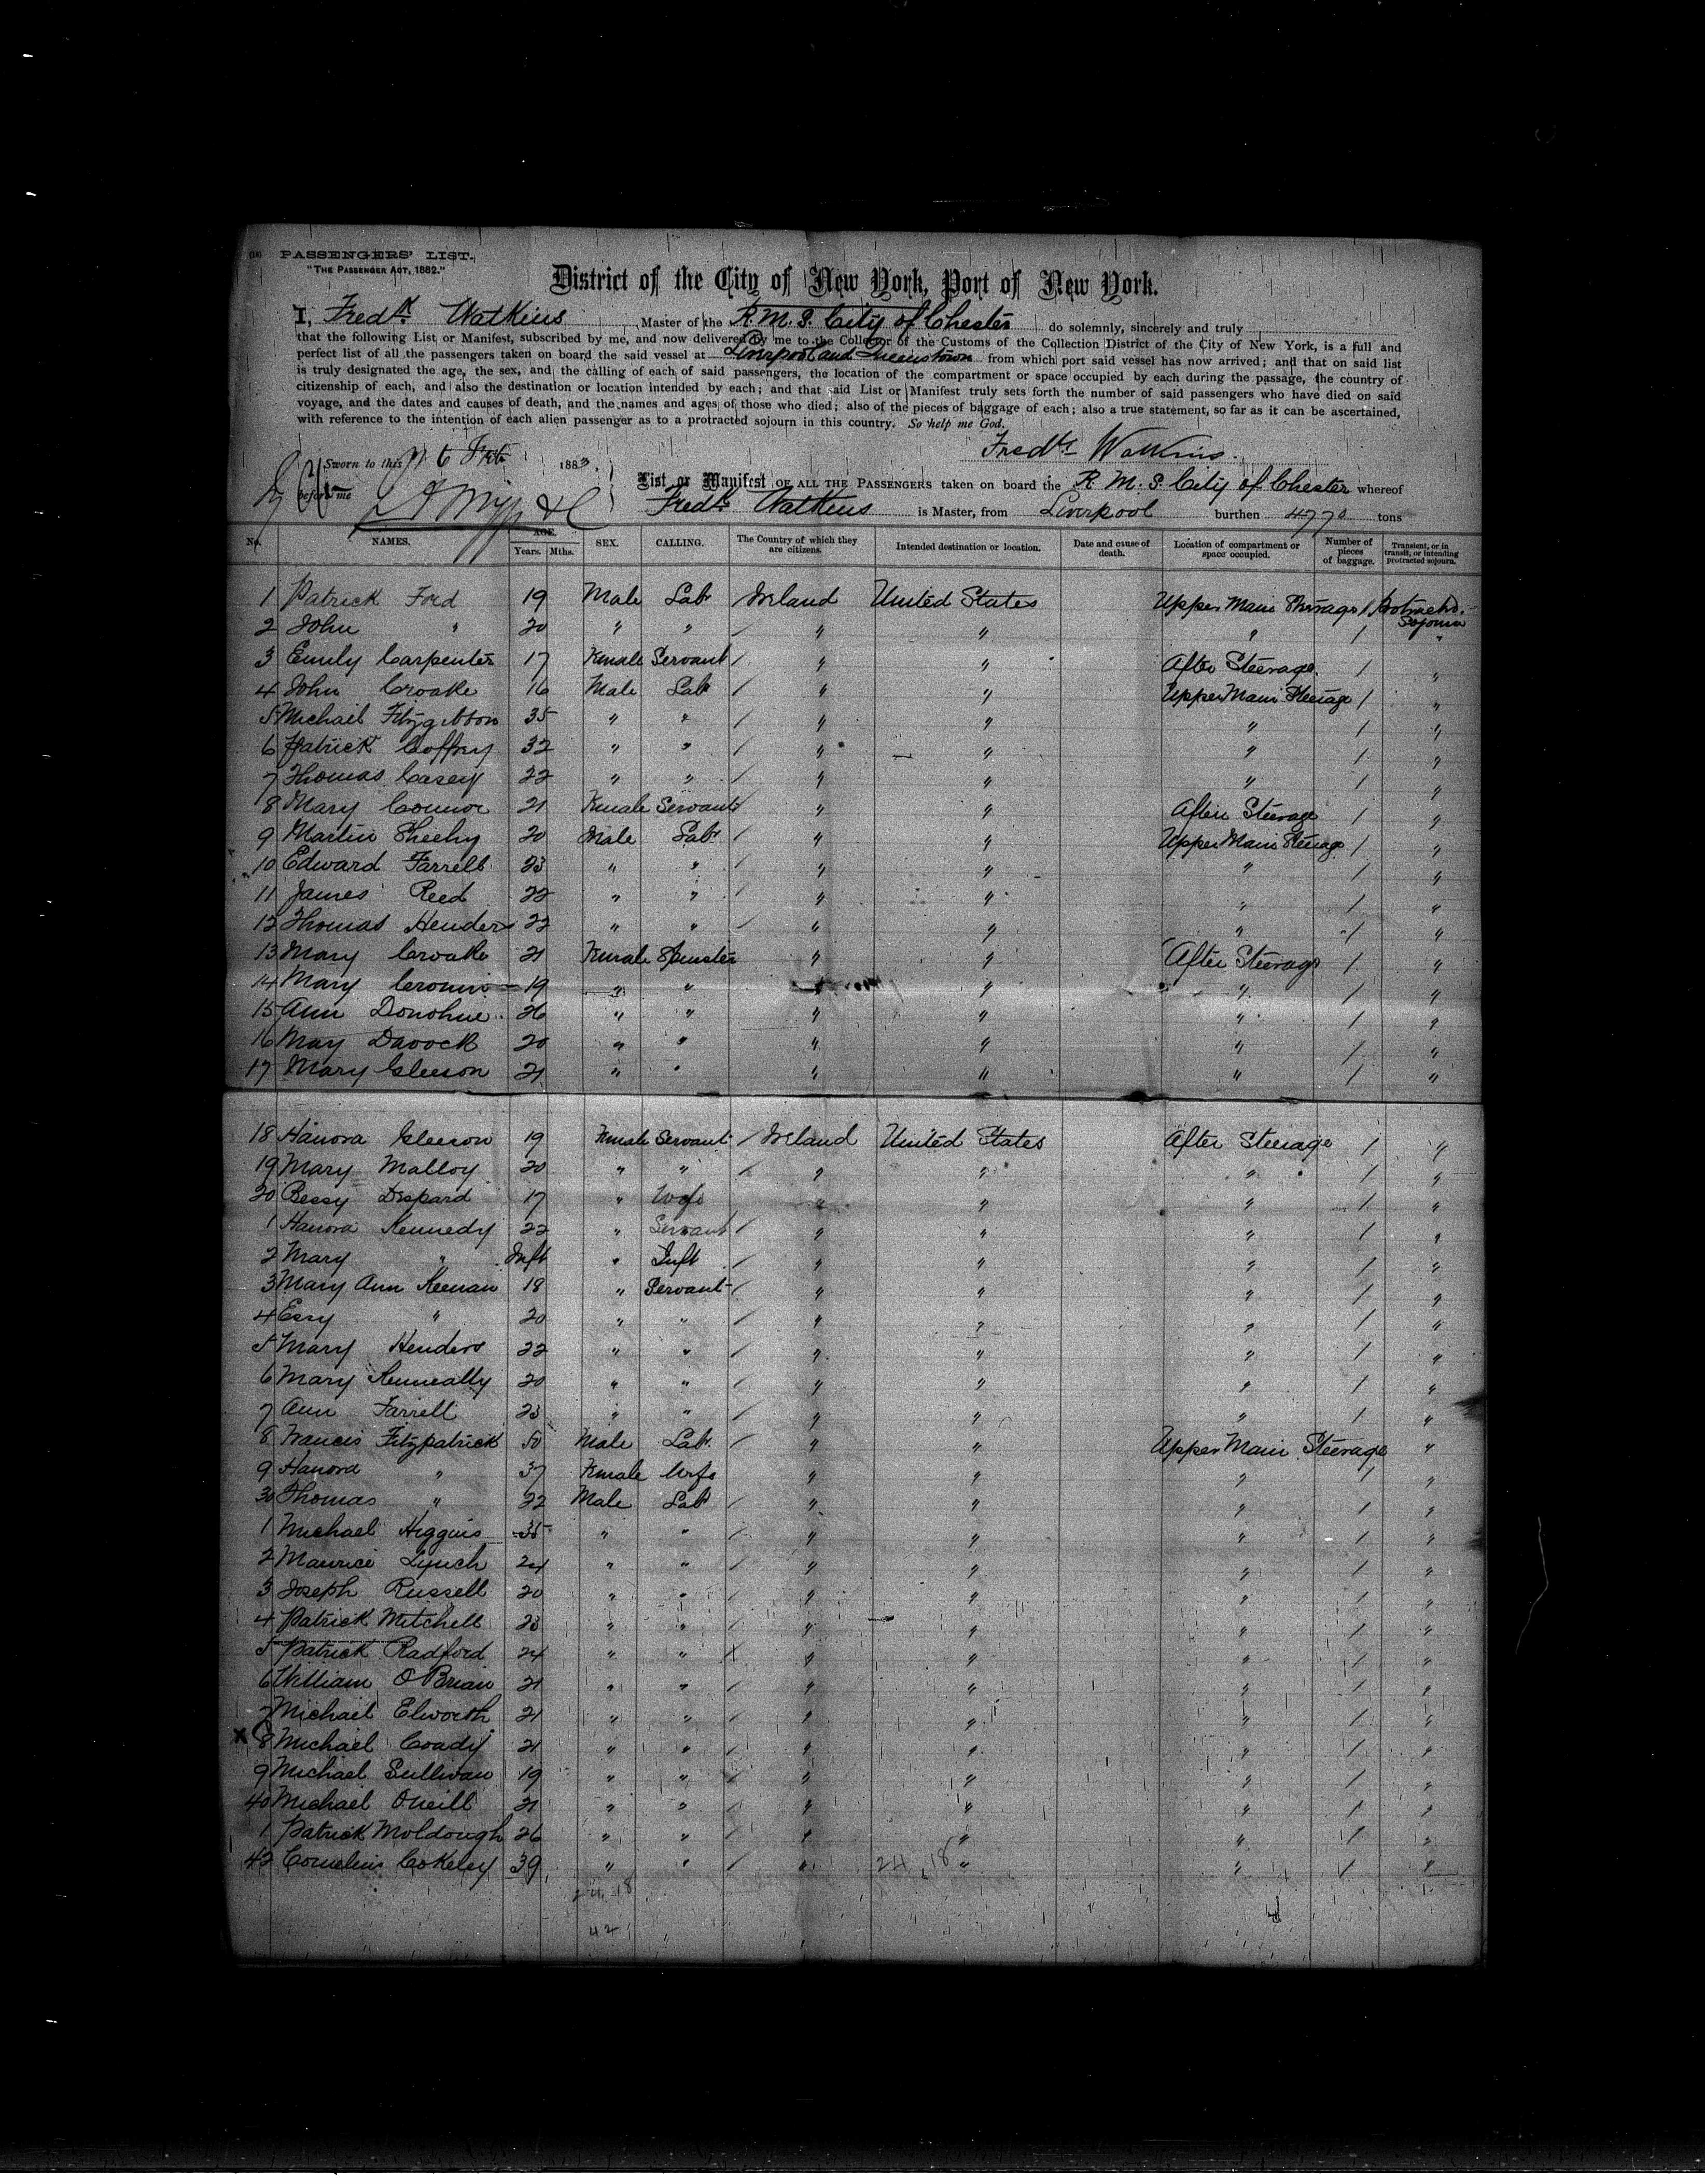 PASSENGERS' LIST.
"THE PASSENGER ACT, 1882."
District of the City of New York, Port of New York.
I, Fredk Watkins Master of the R.M.S. City of Chester do solemnly, sincerely and truly
that the following List or Manifest, subscribed by me, and now delivered by me to the Collector of the Customs of the Collection District of the City of New York, is a full and
perfect list of all the passengers taken on board the said vessel at Liverpool and Queenstown from which port said vessel has now arrived; and that on said list
is truly designated the age, the sex, and the calling of each of said passengers, the location of the compartment or space occupied by each during the passage, the country of
citizenship of each, and also the destination or location intended by each; and that said List or Manifest truly sets forth the number of said passengers who have died on said
voyage, and the dates and causes of death, and the names and ages of those who died; also of the pieces of baggage of each; also a true statement, so far as it can be ascertained,
with reference to the intention of each alien passenger as to a protracted sojourn in this country. So help me God.
Fredk Watkins.
Sworn to this 6 1883
before me
List or Manifest OF ALL THE PASSENGERS taken on board the R.M.S. City of Chester whereof
Fredk Watkins is Master, from Liverpool burthen 4770 tons
No. NAMES. AGE. Years. Mths. SEX. CALLING. The Country of which they are citizens. Intended destination or location. Date and cause of death. Location of compartment or space occupied. Number of pieces of baggage. Transient, or in transit, or intending protracted sojourn.
1 Patrick Ford 19 Male Labr / Ireland United States Upper Main Steerage 1 Protractd. Sojourn
2 John " 20 " " / " " " 1 "
3 Emily Carpenter 17 Female Servant / " " After Steerage 1 "
4 John Croake 16 Male Labr / " " Upper Main Steerage 1 "
5 Michael Fitzgibbon 35 " " / " " " 1 "
6 Patrick Coffrey 32 " " / " " " 1 "
7 Thomas Casey 22 " " / " " " 1 "
8 Mary Connor 21 Female Servant / " " After Steerage 1 "
9 Martin Sheehy 20 Male Labr / " " Upper Main Steerage 1 "
10 Edward Farrell 23 " " / " " " 1 "
11 James Reed 22 " " / " " " 1 "
12 Thomas Henders 22 " " / " " " 1 "
13 Mary Croake 21 Female Spinster " " After Steerage 1 "
14 Mary Cronin 19 " " " " 1 "
15 Ann Donohue 26 " " " " " 1 "
16 May Davock 20 " " " " " 1 "
17 Mary Gleeson 21 " " " " " 1 "
18 Hanora Gleeson 19 Female Servant / Ireland United States After Steerage 1 "
19 Mary Malloy 20 " " / " " " 1 "
20 Bessy Despard 17 " Wife " " " 1 "
1 Hanora Kennedy 22 " Servant / " " " 1 "
2 Mary " Inft " Inft / " " " 1 "
3 Mary Ann Keenan 18 " Servant / " " " 1 "
4 Essy " 20 " " / " " " 1 "
5 Mary Henders 22 " " / " " " 1 "
6 Mary Kenneally 20 " " / " " " 1 "
7 Ann Farrell 23 " " / " " " 1 "
8 Francis Fitzpatrick 50 Male Labr / " " Upper Main Steerage "
9 Hanora " 37 Female Wife " " " 1 "
30 Thomas " 22 Male Labr / " " " 1 "
1 Michael Higgins 35 " " / " " " 1 "
2 Maurice Lynch 24 " " / " " " 1 "
3 Joseph Russell 20 " " / " " " 1 "
4 Patrick Mitchell 23 " " / " " " 1 "
5 Patrick Radford 24 " " X " " " 1 "
6 William O Brian 21 " " / " " " 1 "
7 Michael Elworth 21 " " / " " " 1 "
X 8 Michael Coady 21 " " / " " " 1 "
9 Michael Sullivan 19 " " / " " " 1 "
40 Michael Oneill 21 " " / " " " 1 "
1 Patrick Moldough 26 " " / " " " 1 "
42 Cornelius Cokeley 39 " " / " 24, 18 " " 1 "
24, 18
42